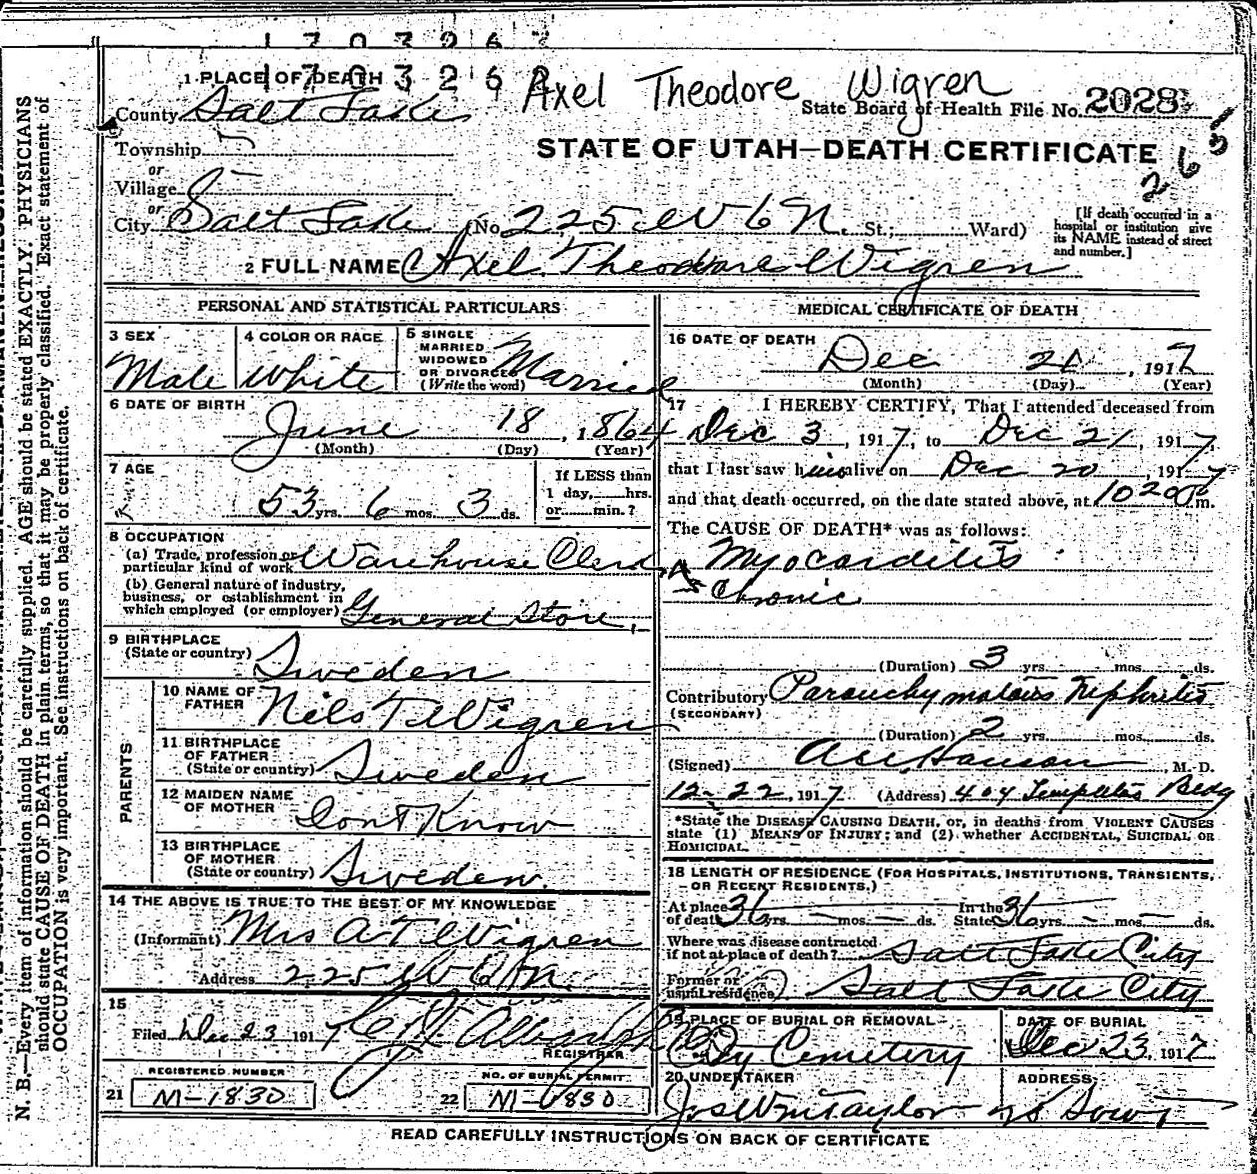 170326
1 PLACE OF DEATH
Axel Theodore Wigren
County Salt Lake
State Board of Health File No. 2028
Township
or
STATE OF UTAH—DEATH CERTIFICATE
Village
or
City Salt Lake (No. 225 W 6 N. St.; Ward)
[If death occurred in a hospital or institution give its NAME instead of street and number.]
2 FULL NAME Axel Theodore Wigren
PERSONAL AND STATISTICAL PARTICULARS
3 SEX
Male
4 COLOR OR RACE
White
5 SINGLE
MARRIED
WIDOWED
OR DIVORCED
(Write the word)
Married
6 DATE OF BIRTH
June 18, 1864
(Month) (Day) (Year)
7 AGE
53 yrs. 6 mos. 3 ds.
If LESS than
1 day, hrs.
or min.?
8 OCCUPATION
(a) Trade, profession or
particular kind of work Warehouse Clerk
(b) General nature of industry,
business, or establishment in
which employed (or employer) General Store,
9 BIRTHPLACE
(State or country) Sweden
PARENTS
10 NAME OF
FATHER Nels T Wigren
11 BIRTHPLACE
OF FATHER
(State or country) Sweden
12 MAIDEN NAME
OF MOTHER Dont Know
13 BIRTHPLACE
OF MOTHER
(State or country) Sweden.
14 THE ABOVE IS TRUE TO THE BEST OF MY KNOWLEDGE
(Informant) Mrs A T Wigren
Address 225 W 6 N.
15
Filed Dec 23 1917
REGISTRAR
REGISTERED NUMBER
21 M-1830
NO. OF BURIAL PERMIT
22 M-1830
MEDICAL CERTIFICATE OF DEATH
16 DATE OF DEATH
Dec 21, 1917
(Month) (Day) (Year)
17 I HEREBY CERTIFY, That I attended deceased from
Dec 3, 1917, to Dec 21, 1917,
that I last saw him alive on Dec 20 1917
and that death occurred, on the date stated above, at 1020 P m.
The CAUSE OF DEATH* was as follows:
Myocarditis
Chronic
(Duration) 3 yrs. mos. ds.
Contributory Parenchymatous Nephritis
(SECONDARY)
(Duration) 2 yrs. mos. ds.
(Signed) Hanson M. D.
12-22, 1917 (Address) 404 Templeton Bldg
*State the DISEASE CAUSING DEATH, or, in deaths from VIOLENT CAUSES
state (1) MEANS OF INJURY; and (2) whether ACCIDENTAL, SUICIDAL OR
HOMICIDAL.
18 LENGTH OF RESIDENCE (FOR HOSPITALS, INSTITUTIONS, TRANSIENTS,
OR RECENT RESIDENTS,)
At place of death 36 yrs. — mos. — ds. In the State 36 yrs. — mos. — ds.
Where was disease contracted
if not at place of death? Salt Lake City
Former or
usual residence Salt Lake City
19 PLACE OF BURIAL OR REMOVAL
City Cemetery
DATE OF BURIAL
Dec 23, 1917
20 UNDERTAKER
Jos Wm Taylor
ADDRESS
READ CAREFULLY INSTRUCTIONS ON BACK OF CERTIFICATE
N. B.—Every item of information should be carefully supplied. AGE should be stated EXACTLY. PHYSICIANS
should state CAUSE OF DEATH in plain terms, so that it may be properly classified. Exact statement of
OCCUPATION is very important. See instructions on back of certificate.